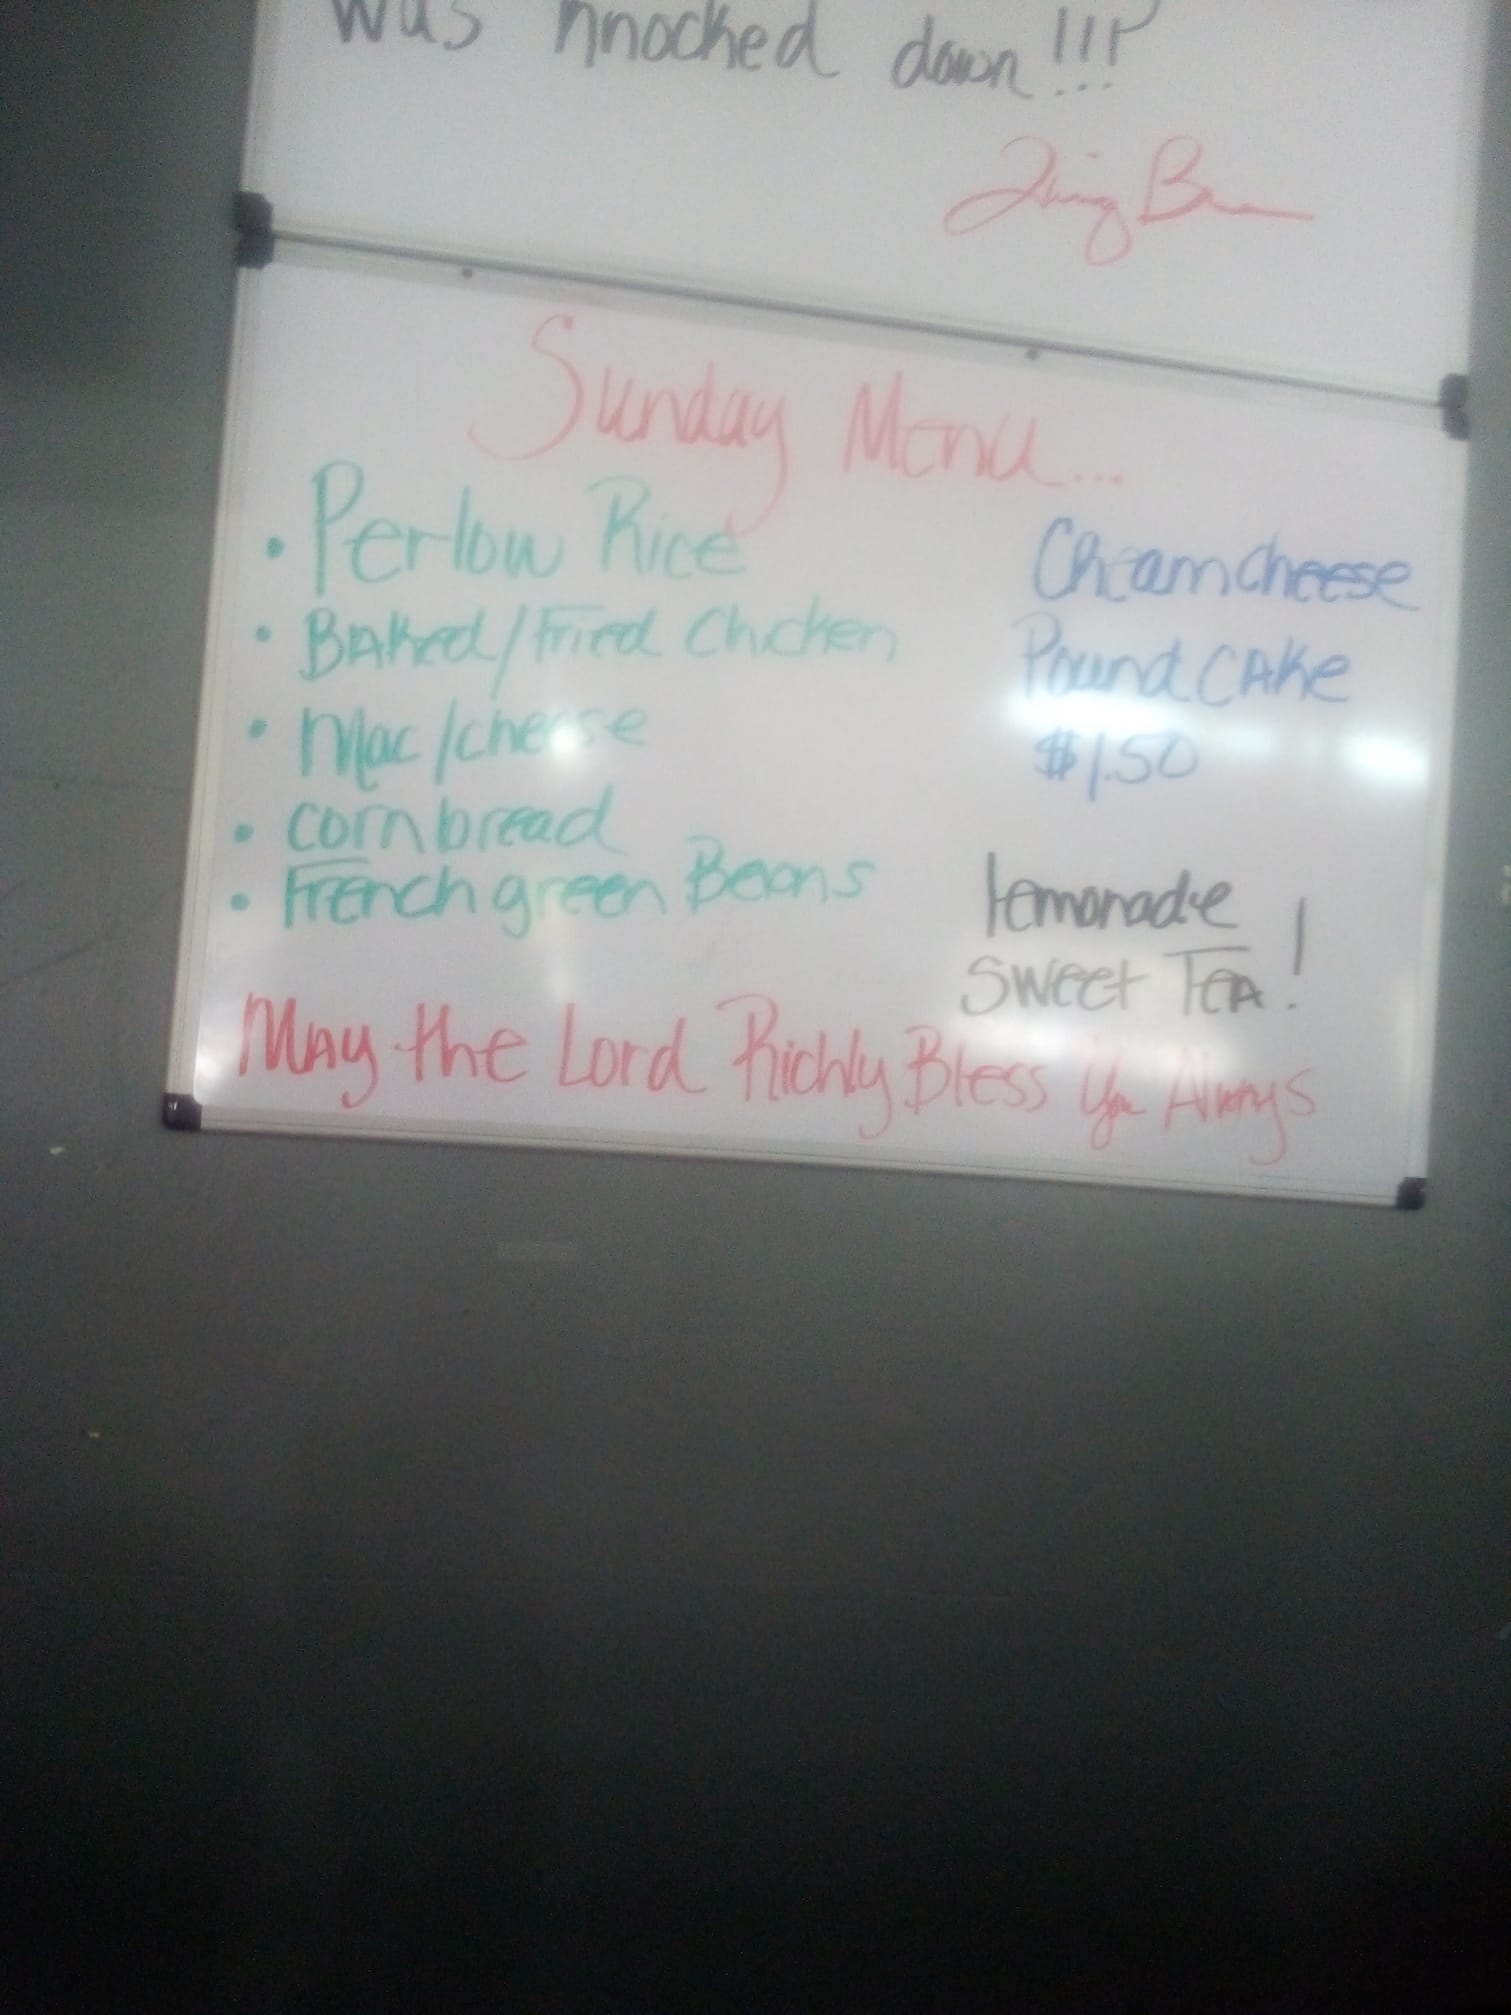 was knocked down!!!
Sunday Menu...
• Perlow Rice
• Baked/Fried Chicken
• Mac/cheese
• cornbread
• French green Beans
Creamcheese
Pound Cake
$1.50
lemonade
Sweet Tea!
May the Lord Richly Bless You Always